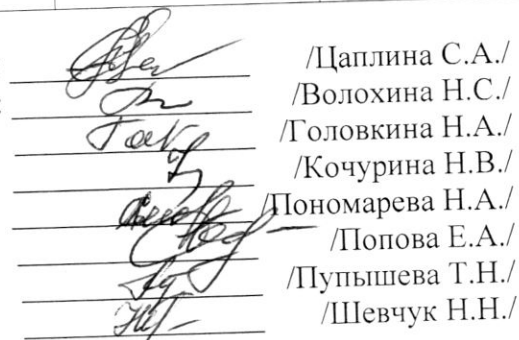 /Цаплина С.А./
/Волохина Н.С./
/Головкина Н.А./
/Кочурина Н.В./
/Пономарева Н.А./
/Попова Е.А./
/Пупышева Т.Н./
/Шевчук Н.Н./